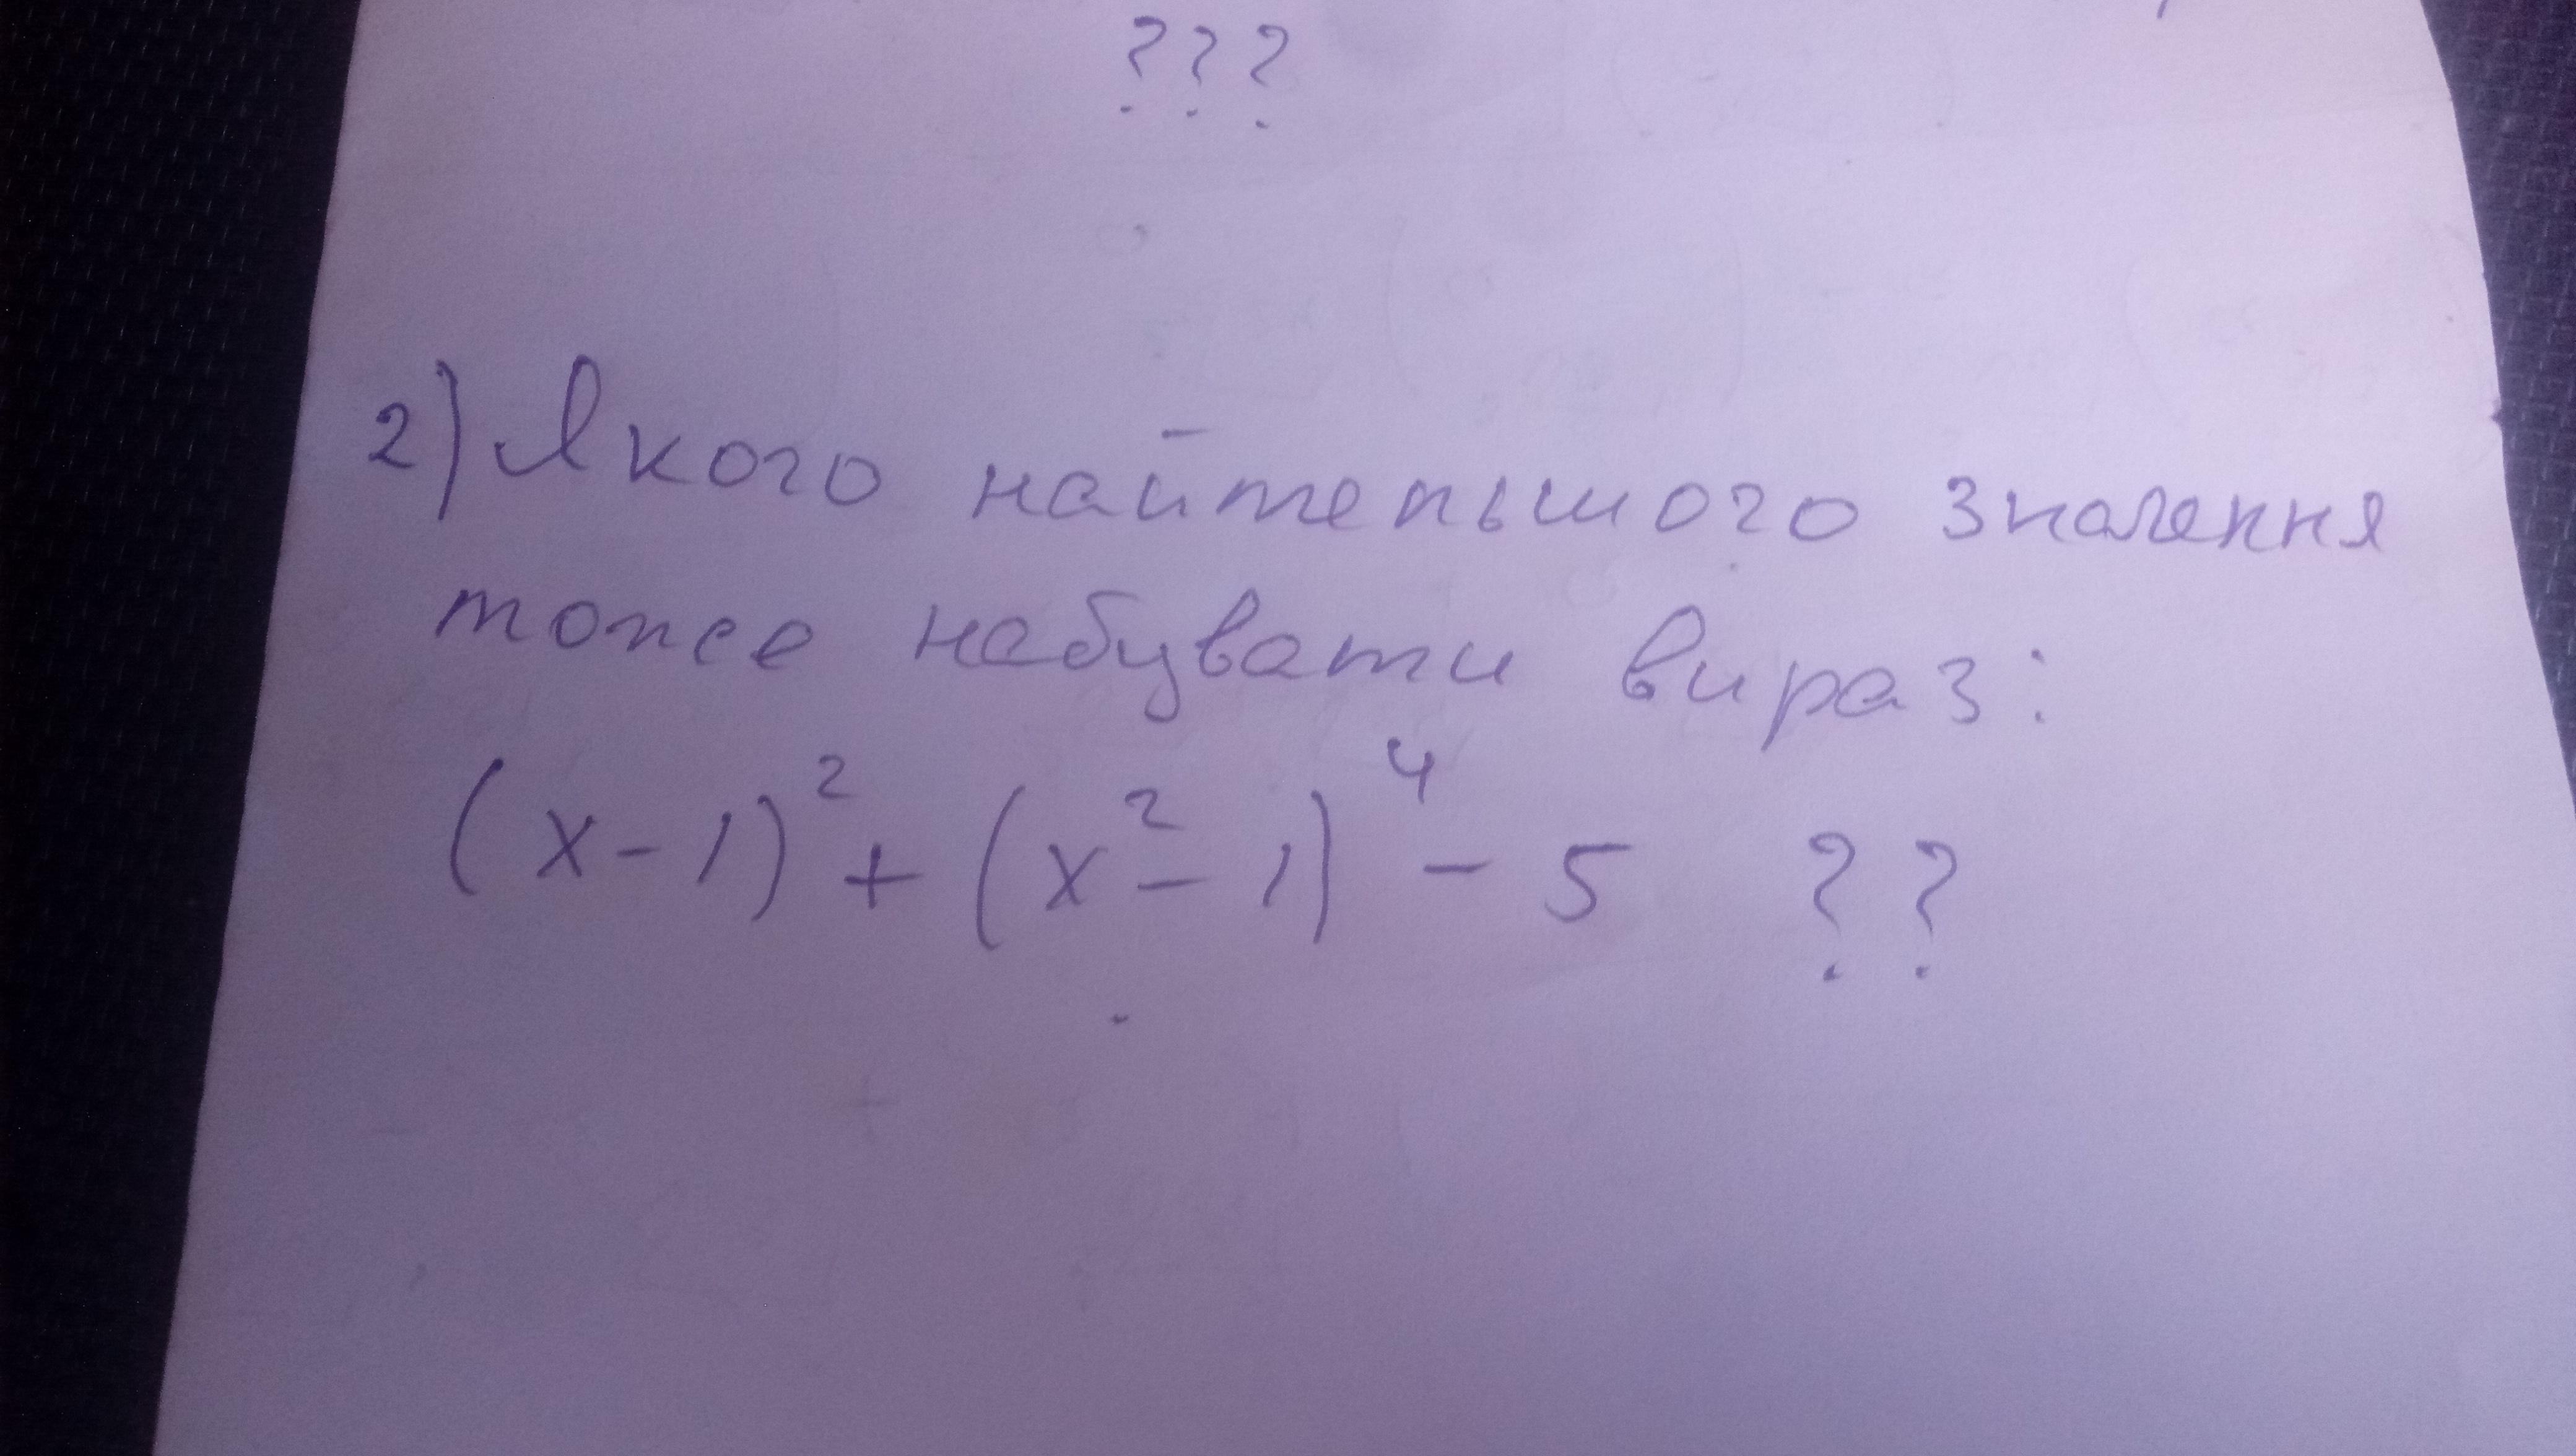 ???
2) Якого найменшого значення
може набувати вираз:
(x-1)² + (x²-1)⁴ - 5 ??